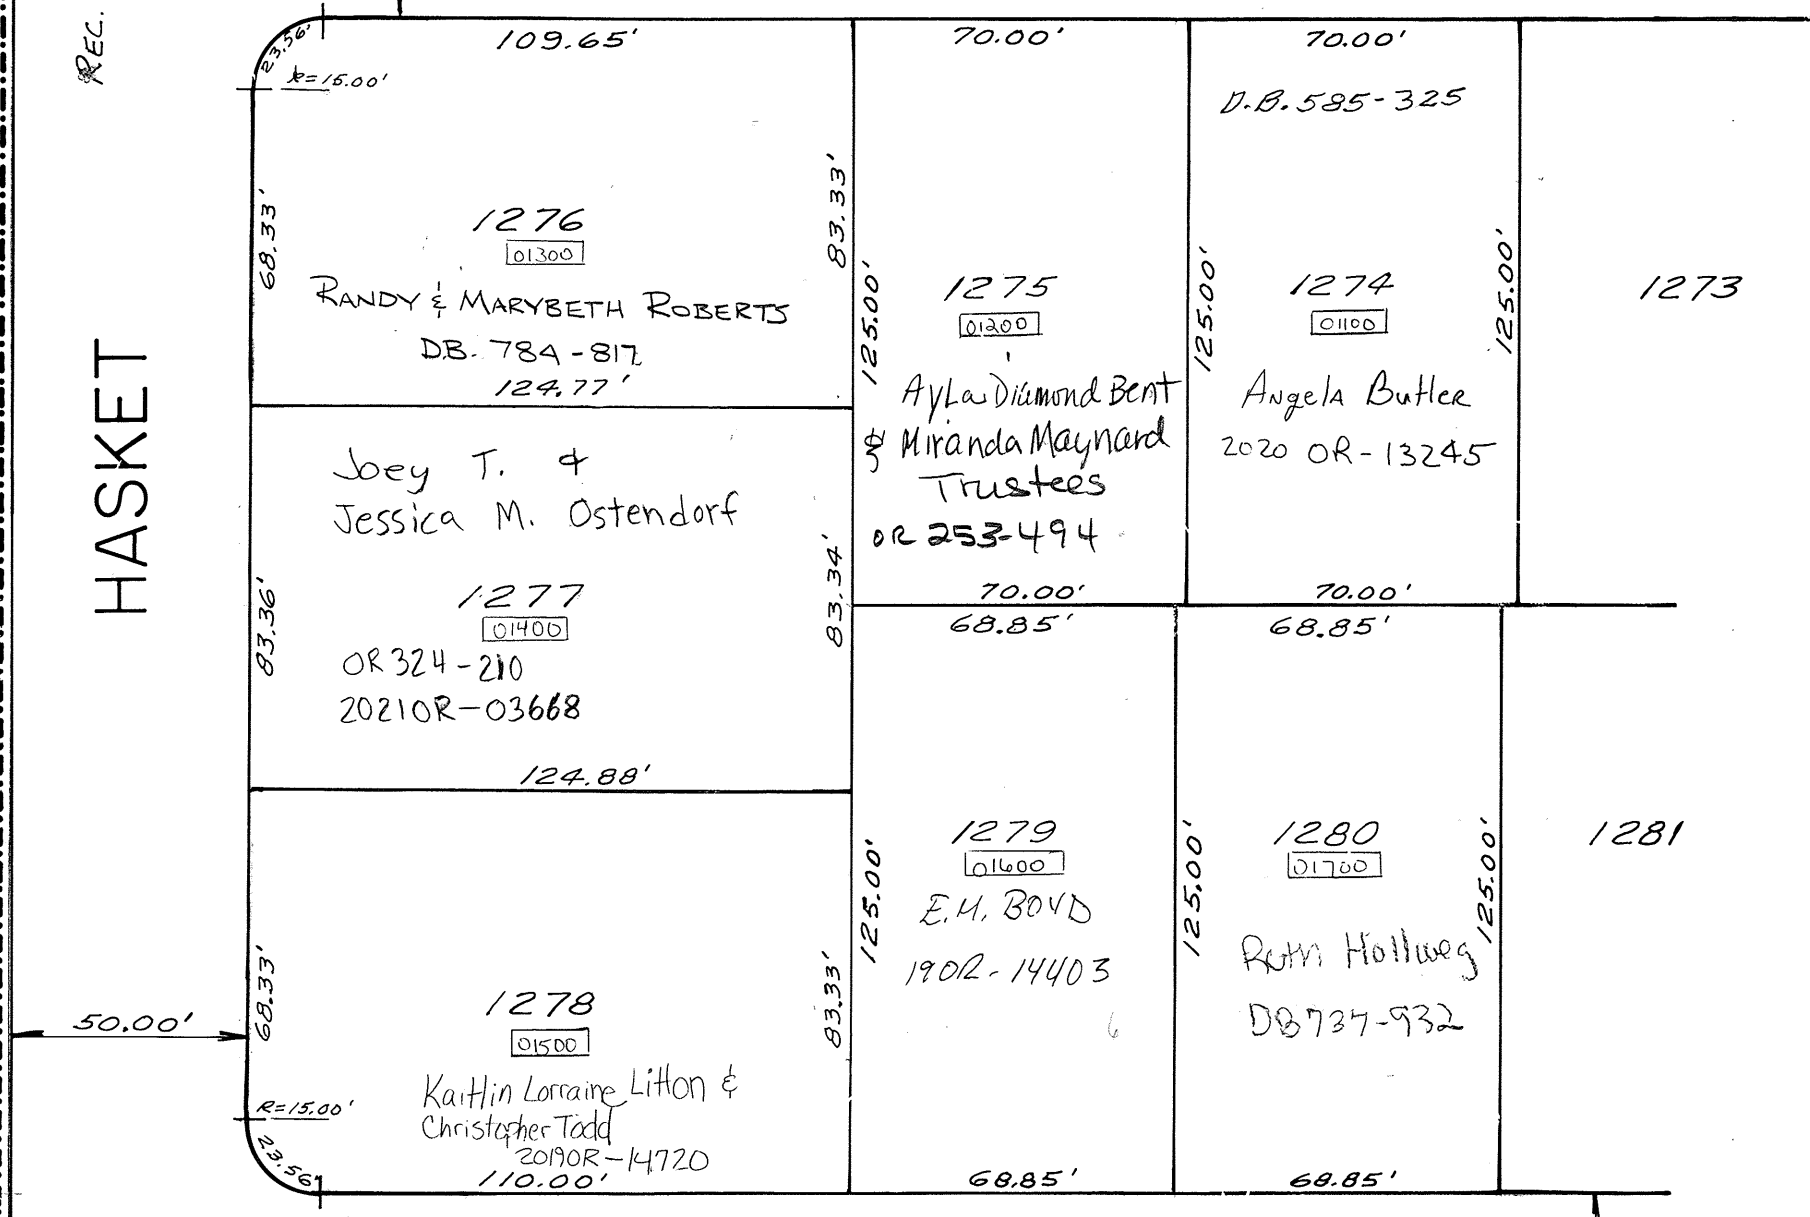 REC.
HASKET
50.00'
23.56'
R=15.00'
109.65'
68.33'
83.33'
1276
01300
RANDY & MARYBETH ROBERTS
D.B. 784-817
124.77'
Joey T. &
Jessica M. Ostendorf
83.36'
83.34'
1277
01400
OR 324-210
2021OR-03668
124.88'
68.33'
83.33'
1278
01500
Kaitlin Lorraine Litton &
Christopher Todd
2019OR-14720
R=15.00'
23.56'
110.00'
70.00'
125.00'
1275
01200
Ayla Diamond Bent
& Miranda Maynard
Trustees
OR 253-494
70.00'
70.00'
D.B. 585-325
125.00'
125.00'
1274
01100
Angela Butler
2020 OR-13245
70.00'
1273
68.85'
125.00'
1279
01600
E.M. BOYD
19OR-14403
68.85'
68.85'
125.00'
125.00'
1280
01700
Ruth Hollweg
DB737-932
68.85'
1281